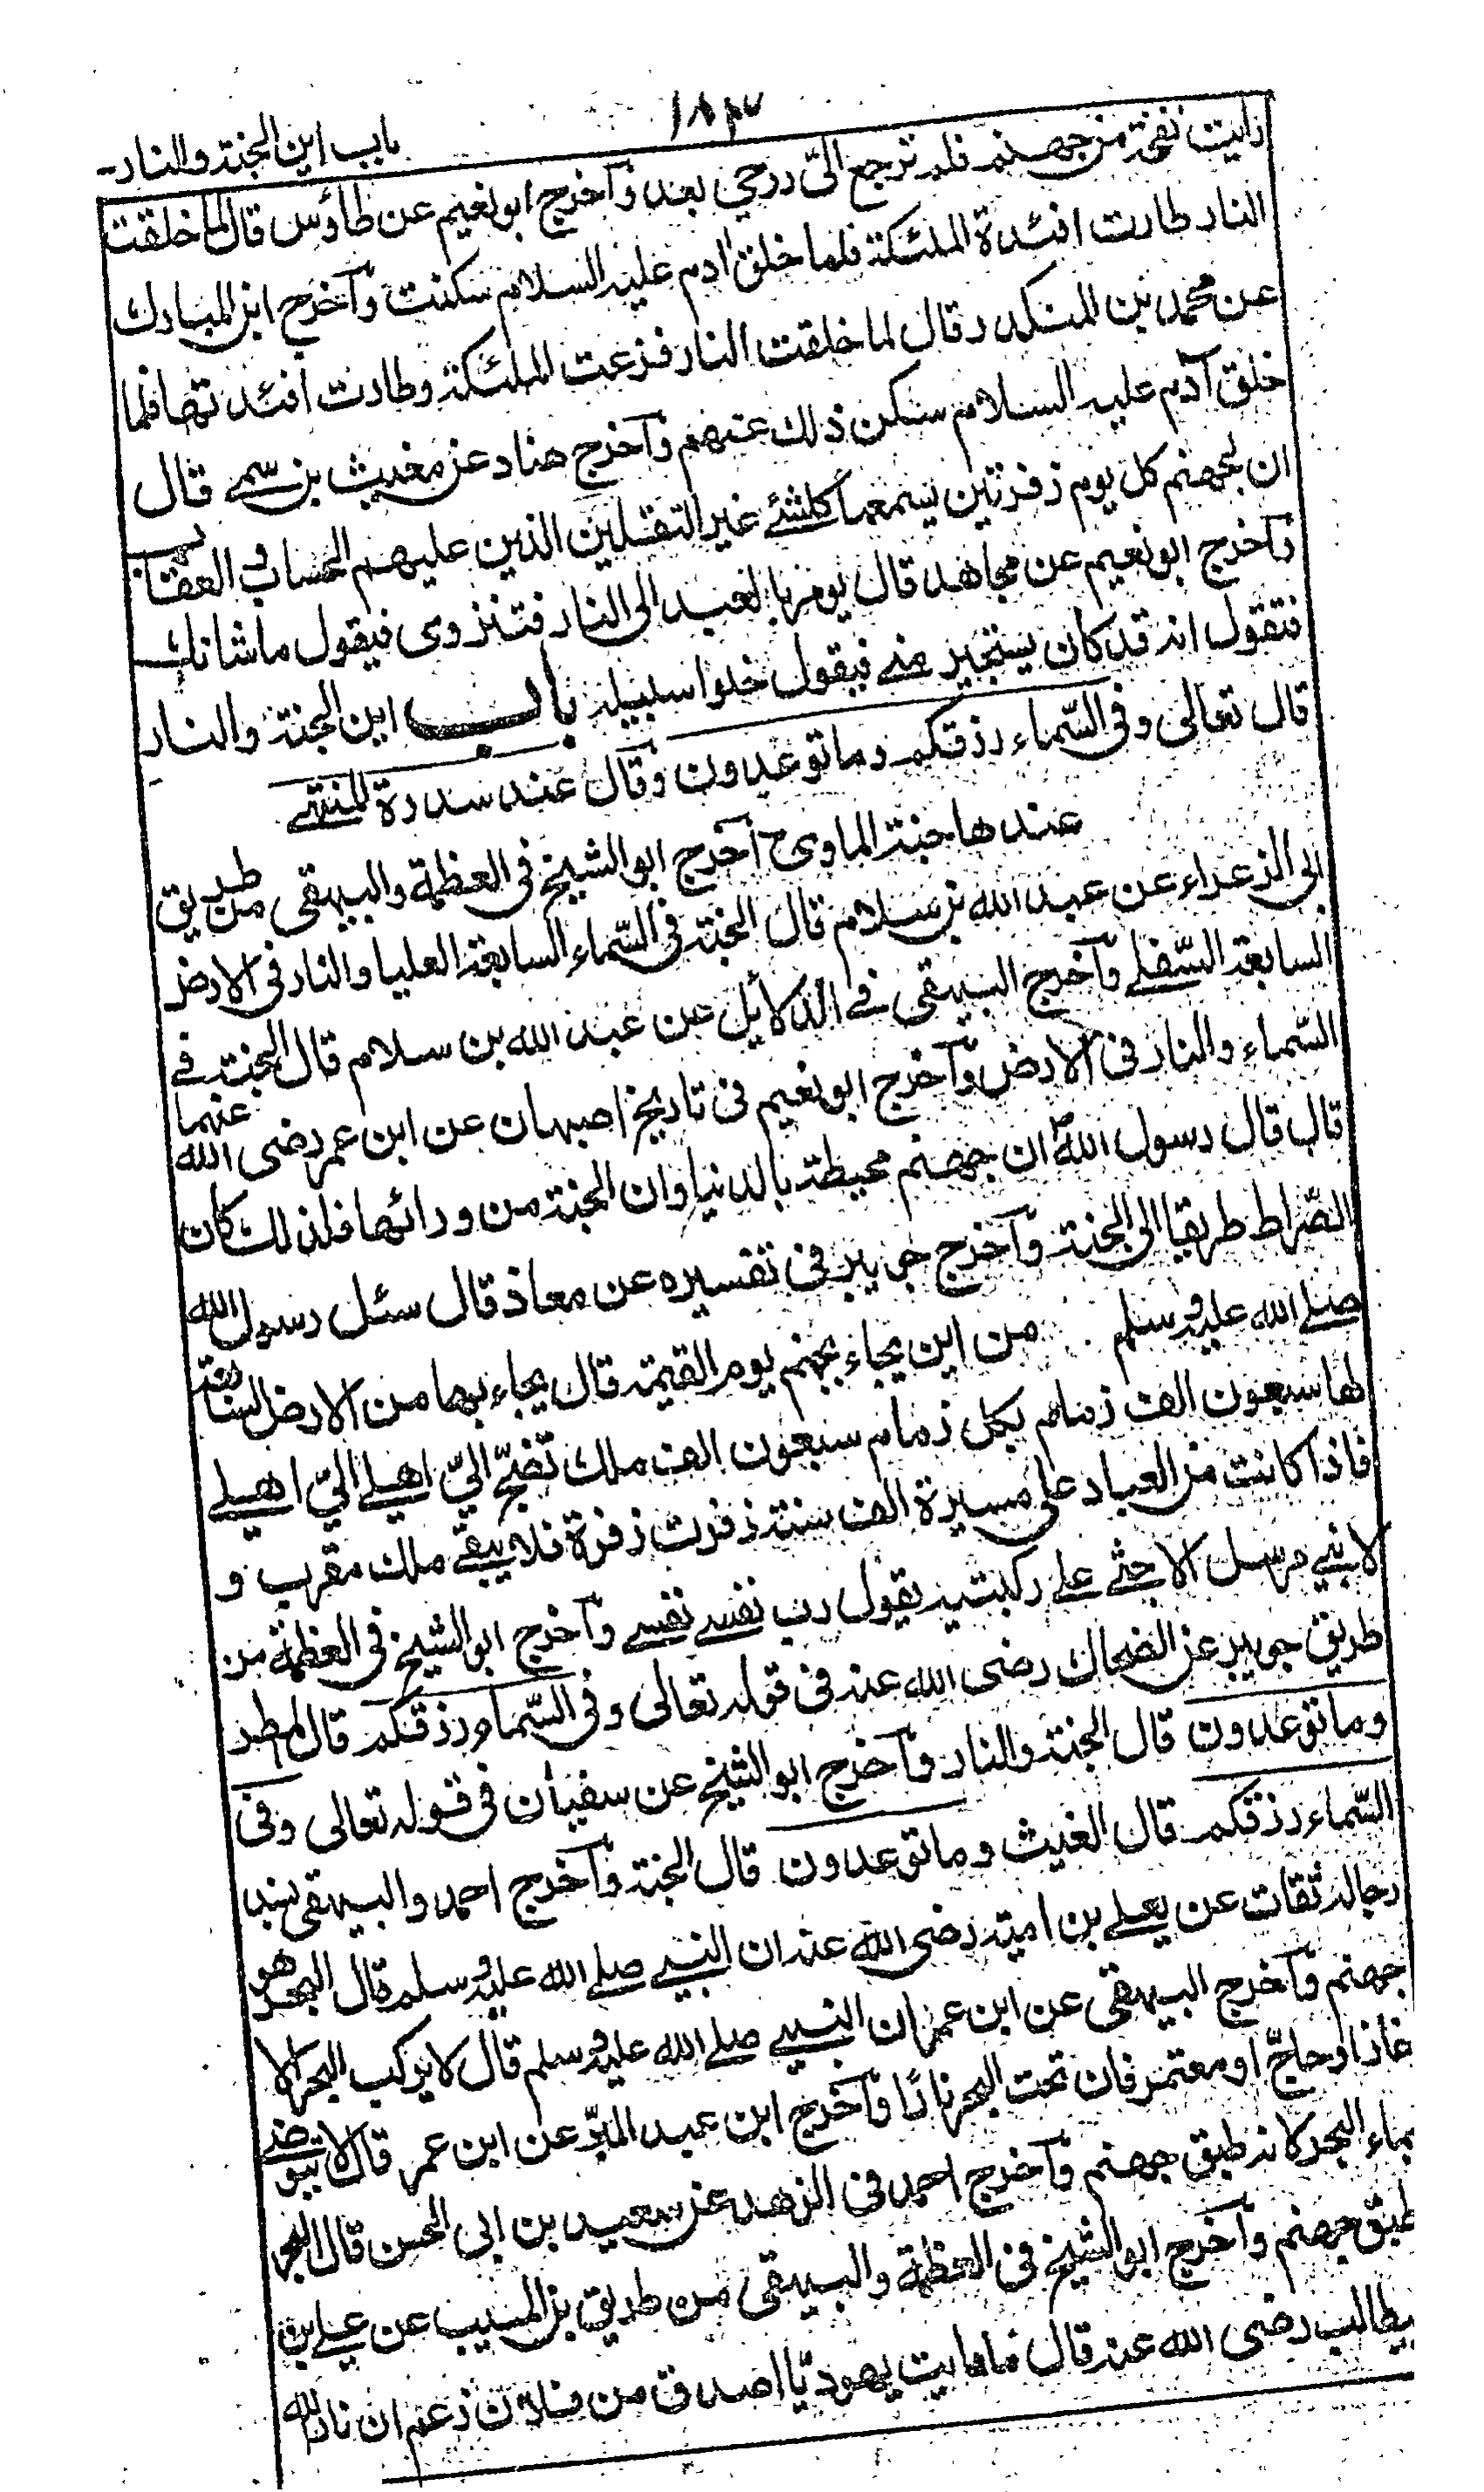 ١٨٣
باب اين الجنة والنار-
رأيت نفحة من جهنم فلم ترجع الىّ روحي بعد وآخرج ابو نعيم عن طاؤس قال لما خلقت
النار طارت افئدة الملئكة فلما خلق ادم عليه السلام سكنت وآخرج ابن المبارك
عن محمد بن المنكدر قال لما خلقت النار فزعت الملئكة وطارت افئدتها فلما
خلق آدم عليه السلام سكن ذلك عنهم وآخرج هناد عن مغيث بن سمے قال
ان لجهنم كل يوم زفرتين يسمعها كلشئے غير الثقلين الذين عليهم الحساب و العقاب
وآخرج ابو نعيم عن مجاهد قال يومر بالعبد الى النار فتنزوى فيقول ما شانك
فتقول انه قد كان يستجير منے فيقول خلوا سبيله باب اين الجنة والنار
قال تعالى وفى السّماء رزقكم وما توعدون وقال عند سدرة المنتهے
عندها جنة الماوى ح آخرج ابو الشيخ فى العظمة والبيهقى من طريق
ابى الزعراء عن عبد الله بن سلام قال الجنة فى السّماء السابعة العليا والنار فى الارض
السابعة السّفلے وآخرج البيهقى فے الدلائل عن عبد الله بن سلام قال الجنة فے
السّماء والنار فى الارض وآخرج ابو نعيم فى تاريخ اصبهان عن ابن عمر رضى الله عنهما
قال قال رسول الله ان جهنم محيطة بالدنيا وان الجنة من ورائها فلذلك كان
الصّراط طريقا الى الجنة وآخرج جويبر فى تفسيره عن معاذ قال سئل رسول الله
صلے الله عليه وسلم من اين يجاء بجهنم يوم القيمة قال يجاء بها من الارض السابعة
لها سبعون الف زمام بكل زمام سبعون الف ملك تضجّ الىّ اهلے الىّ اهلے
فاذا كانت من العباد على مسيرة الف سنة زفرت زفرة فلا يبقے ملك مقرب و
لا نبے مرسل الا جثے علے ركبتيه يقول رب نفسے نفسے وآخرج ابو الشيخ فى العظمة من
طريق جويبر عن الضحاك رضى الله عنه فى قوله تعالى وفى السّماء رزقكم قال المطر
وما توعدون قال الجنة والنار وآخرج ابو الشيخ عن سفيان فى قوله تعالى وفى
السّماء رزقكم قال الغيث وما توعدون قال الجنة وآخرج احمد والبيهقى بسند
رجاله ثقات عن يعلے بن امية رضى الله عنه ان النبے صلے الله عليه وسلم قال البحر هو
جهنم وآخرج البيهقى عن ابن عمر ان النبے صلے الله عليه وسلم قال لا يركب البحر الا
غاز او حاجّ او معتمر فان تحت البحر نارًا وآخرج ابن عبد البرّ عن ابن عمر قال لا يتوضے
بماء البحر لانه طبق جهنم وآخرج احمد فى الزهد عن سعيد بن ابى الحسن قال البحر
طبق جهنم وآخرج ابو الشيخ فى العظمة والبيهقى من طريق بن المسيب عن علے بن
بيطالب رضى الله عنه قال ما رايت يهوديّا اصدق من فلان زعم ان نار الله